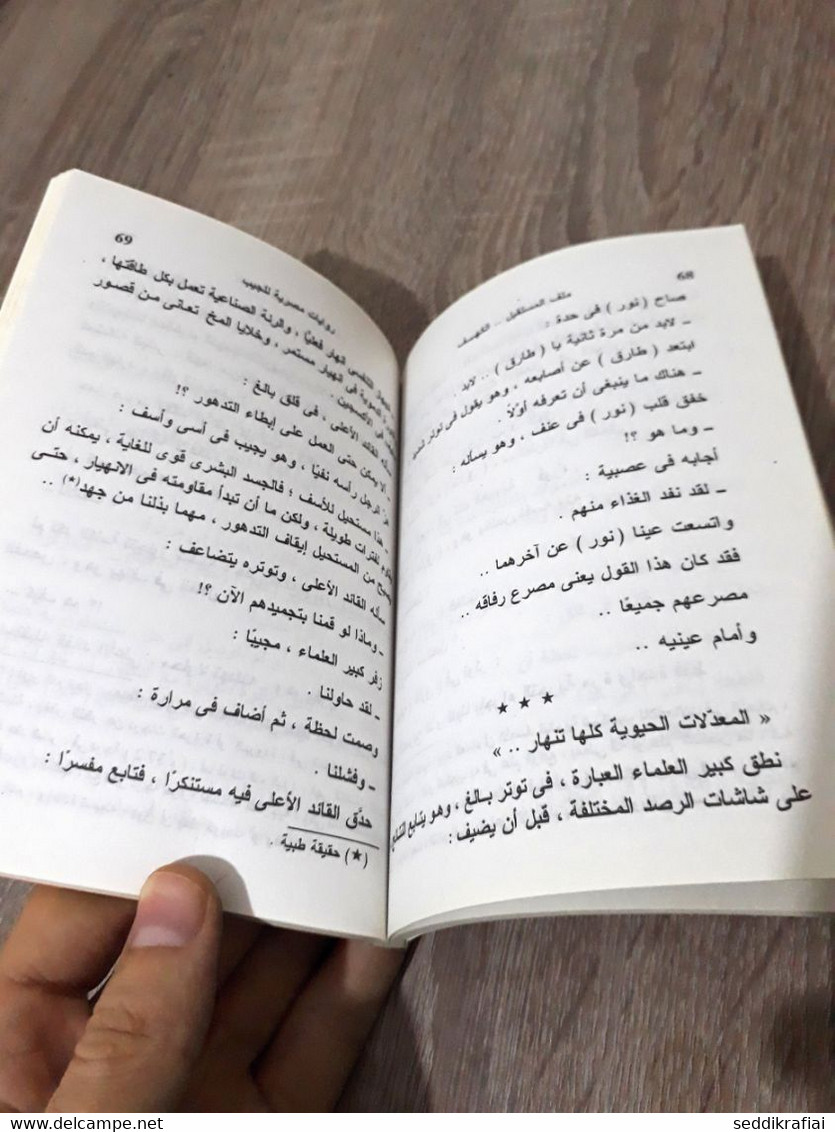 68
ملف المستقبل .. الكهف
صاح ( نور ) فى حدة :
ـ لابد من مرة ثانية يا ( طارق ) .. لابد .
ابتعد ( طارق ) عن أصابعه ، وهو يقول فى توتر
ـ هناك ما ينبغى أن تعرفه أولاً .
خفق قلب ( نور ) فى عنف ، وهو يسأله :
ـ وما هو ؟!
أجابه فى عصبية :
ـ لقد نفد الغذاء منهم .
واتسعت عينا ( نور ) عن آخرهما ..
فقد كان هذا القول يعنى مصرع رفاقه ..
مصرعهم جميعًا ..
وأمام عينيه ..
★ ★ ★
« المعدّلات الحيوية كلها تنهار .. »
نطق كبير العلماء العبارة ، فى توتر بالغ ، وهو يتابع
على شاشات الرصد المختلفة ، قبل أن يضيف :
69
روايات مصرية للجيب
التنفسى انهار فعليًا ، والرئة الصناعية تعمل بكل طاقتها ،
الحيوية فى انهيار مستمر ، وخلايا المخ تعانى من قصور
فى الأكسجين .
القائد الأعلى ، فى قلق بالغ :
ـ ألا يمكن حتى العمل على إبطاء التدهور ؟!
هز الرجل رأسه نفيًا ، وهو يجيب فى أسى وأسف :
ـ هذا مستحيل للأسف ؛ فالجسد البشرى قوى للغاية ، يمكنه أن
لفترات طويلة ، ولكن ما أن تبدأ مقاومته فى الانهيار ، حتى
يصبح من المستحيل إيقاف التدهور ، مهما بذلنا من جهد(*) ..
سأله القائد الأعلى ، وتوتره يتضاعف :
ـ وماذا لو قمنا بتجميدهم الآن ؟!
زفر كبير العلماء ، مجيبًا :
ـ لقد حاولنا .
وصمت لحظة ، ثم أضاف فى مرارة :
ـ وفشلنا .
حدّق القائد الأعلى فيه مستنكرًا ، فتابع مفسرًا :
(★) حقيقة طبية .
www.delcampe.net
seddikrafiai